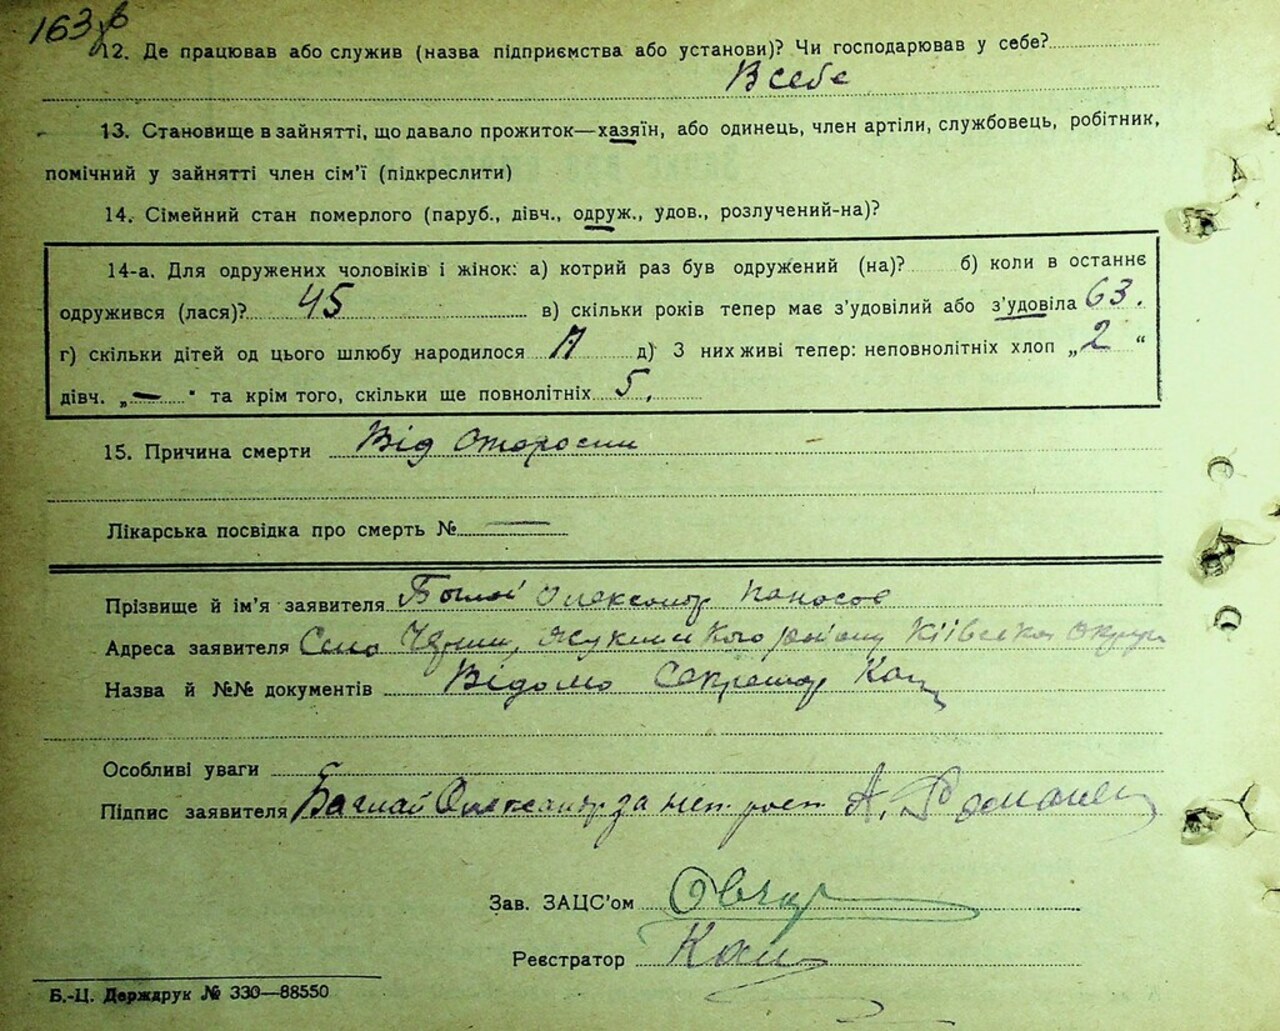 163
12. Де працював або служив (назва підприємства або установи)? Чи господарював у себе?
В себе
13. Становище в зайнятті, що давало прожиток—хазяїн, або одинець, член артіли, службовець, робітник,
помічний у зайнятті член сім’ї (підкреслити)
14. Сімейний стан померлого (паруб., дівч., одруж., удов., розлучений-на)?
14-а. Для одружених чоловіків і жінок: а) котрий раз був одружений (на)? б) коли в останнє
одружився (лася)? 45 в) скільки років тепер має з’удовілий або з’удовіла 63.
г) скільки дітей од цього шлюбу народилося д) З них живі тепер: неповнолітніх хлоп „2“
дівч. „—" та крім того, скільки ще повнолітніх 5,
15. Причина смерти Від старости
Лікарська посвідка про смерть № —
Прізвище й ім’я заявителя Баглай Олександр Панасов
Адреса заявителя Село району Київської Округи
Назва й №№ документів Відомо Секретар Кац
Особливі уваги
Підпис заявителя Баглай Олександр за неп. росп. А. Романец
Зав. ЗАЦС’ом
Реєстратор Кац
Б.-Ц. Держдрук № 330—88550